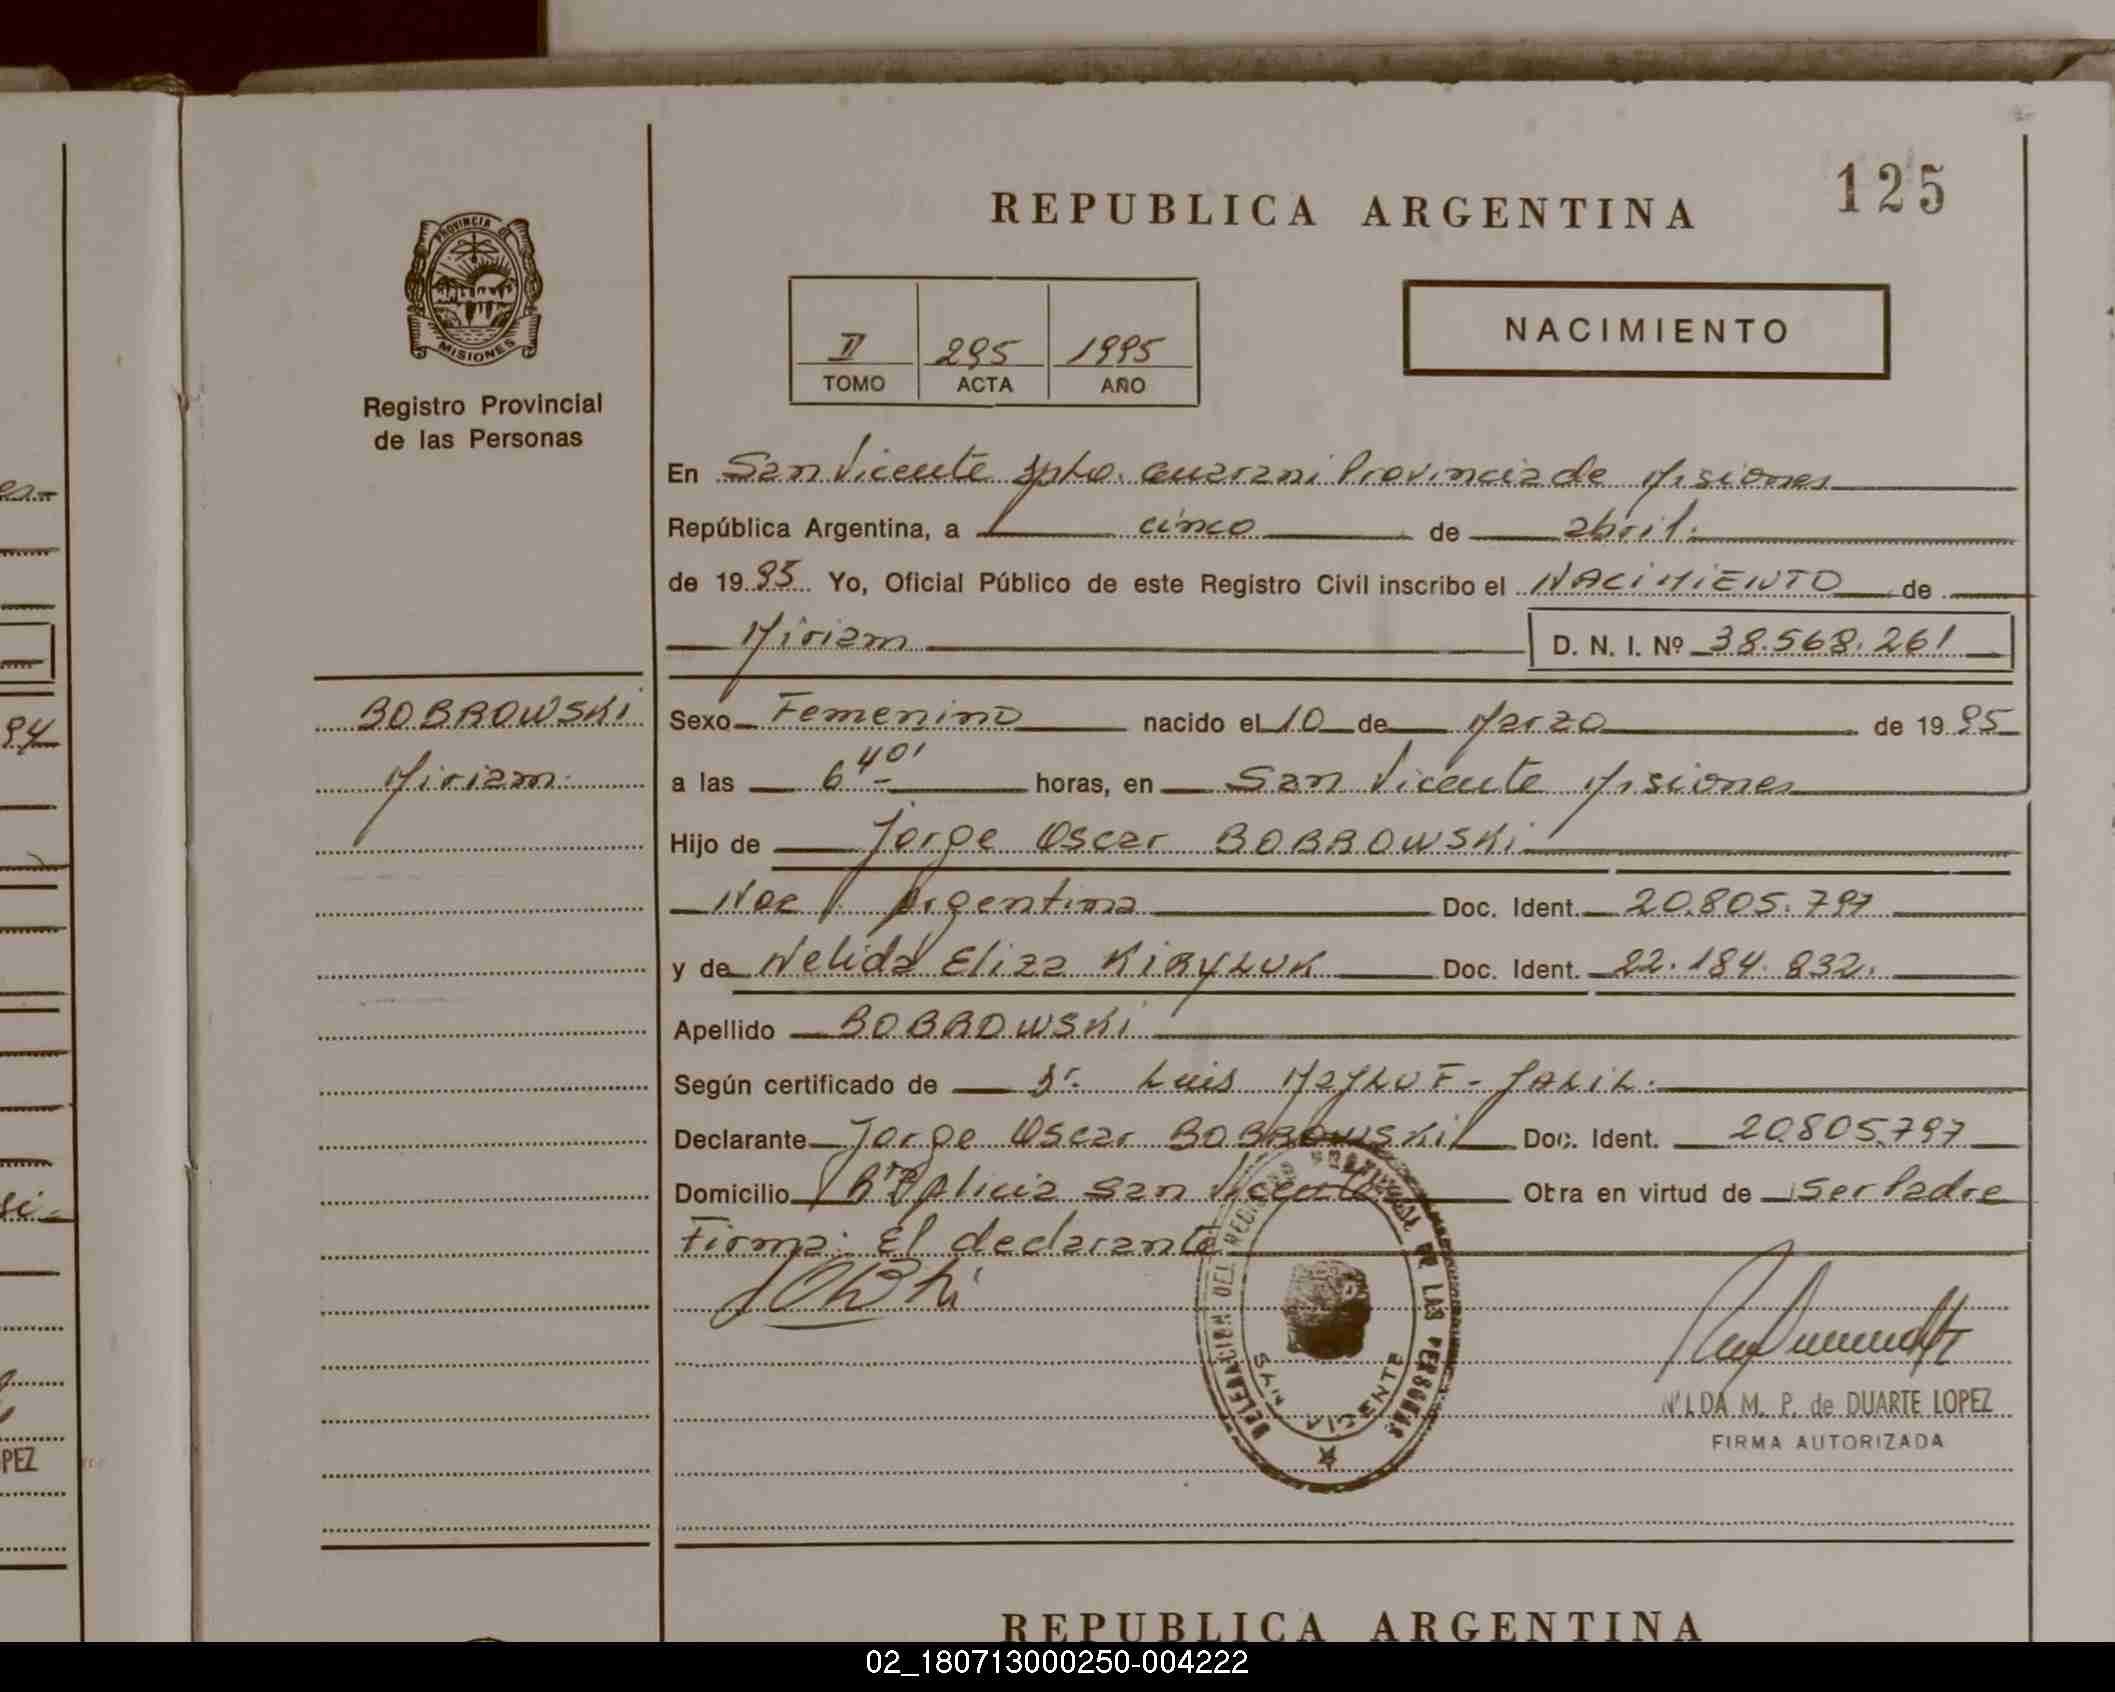 125
REPUBLICA ARGENTINA
PROVINCIA DE
MISIONES
Registro Provincial
de las Personas
II 295 1995
TOMO ACTA AÑO
NACIMIENTO
En San Vicente Dpto. Guarani Provincia de Misiones
República Argentina, a cinco de abril.
de 1995 Yo, Oficial Público de este Registro Civil inscribo el NACIMIENTO de
Miriam D. N. I. Nº 38.568.261
BOBROWSKi
Miriam.
Sexo Femenino nacido el 10 de Marzo de 1995
a las 6 40' horas, en San Vicente Misiones
Hijo de Jorge Oscar BOBROWSKi
Nac. Argentina Doc. Ident. 20.805.797
y de Nelida Eliza KiRYLUK Doc. Ident. 22.184.832.
Apellido BOBROWSKi
Según certificado de Dr. Luis JALiL.
Declarante Jorge Oscar BOBROWSKi Doc. Ident. 20805797
Domicilio Alicia San Vicente Obra en virtud de Ser Padre
Firma: El declarante
DELEGACION DEL REGISTRO PROVINCIAL DE LAS PERSONAS
SAN VICENTE
NILDA M. P. de DUARTE LOPEZ
FIRMA AUTORIZADA
REPUBLICA ARGENTINA
94
PEZ
02_180713000250-004222